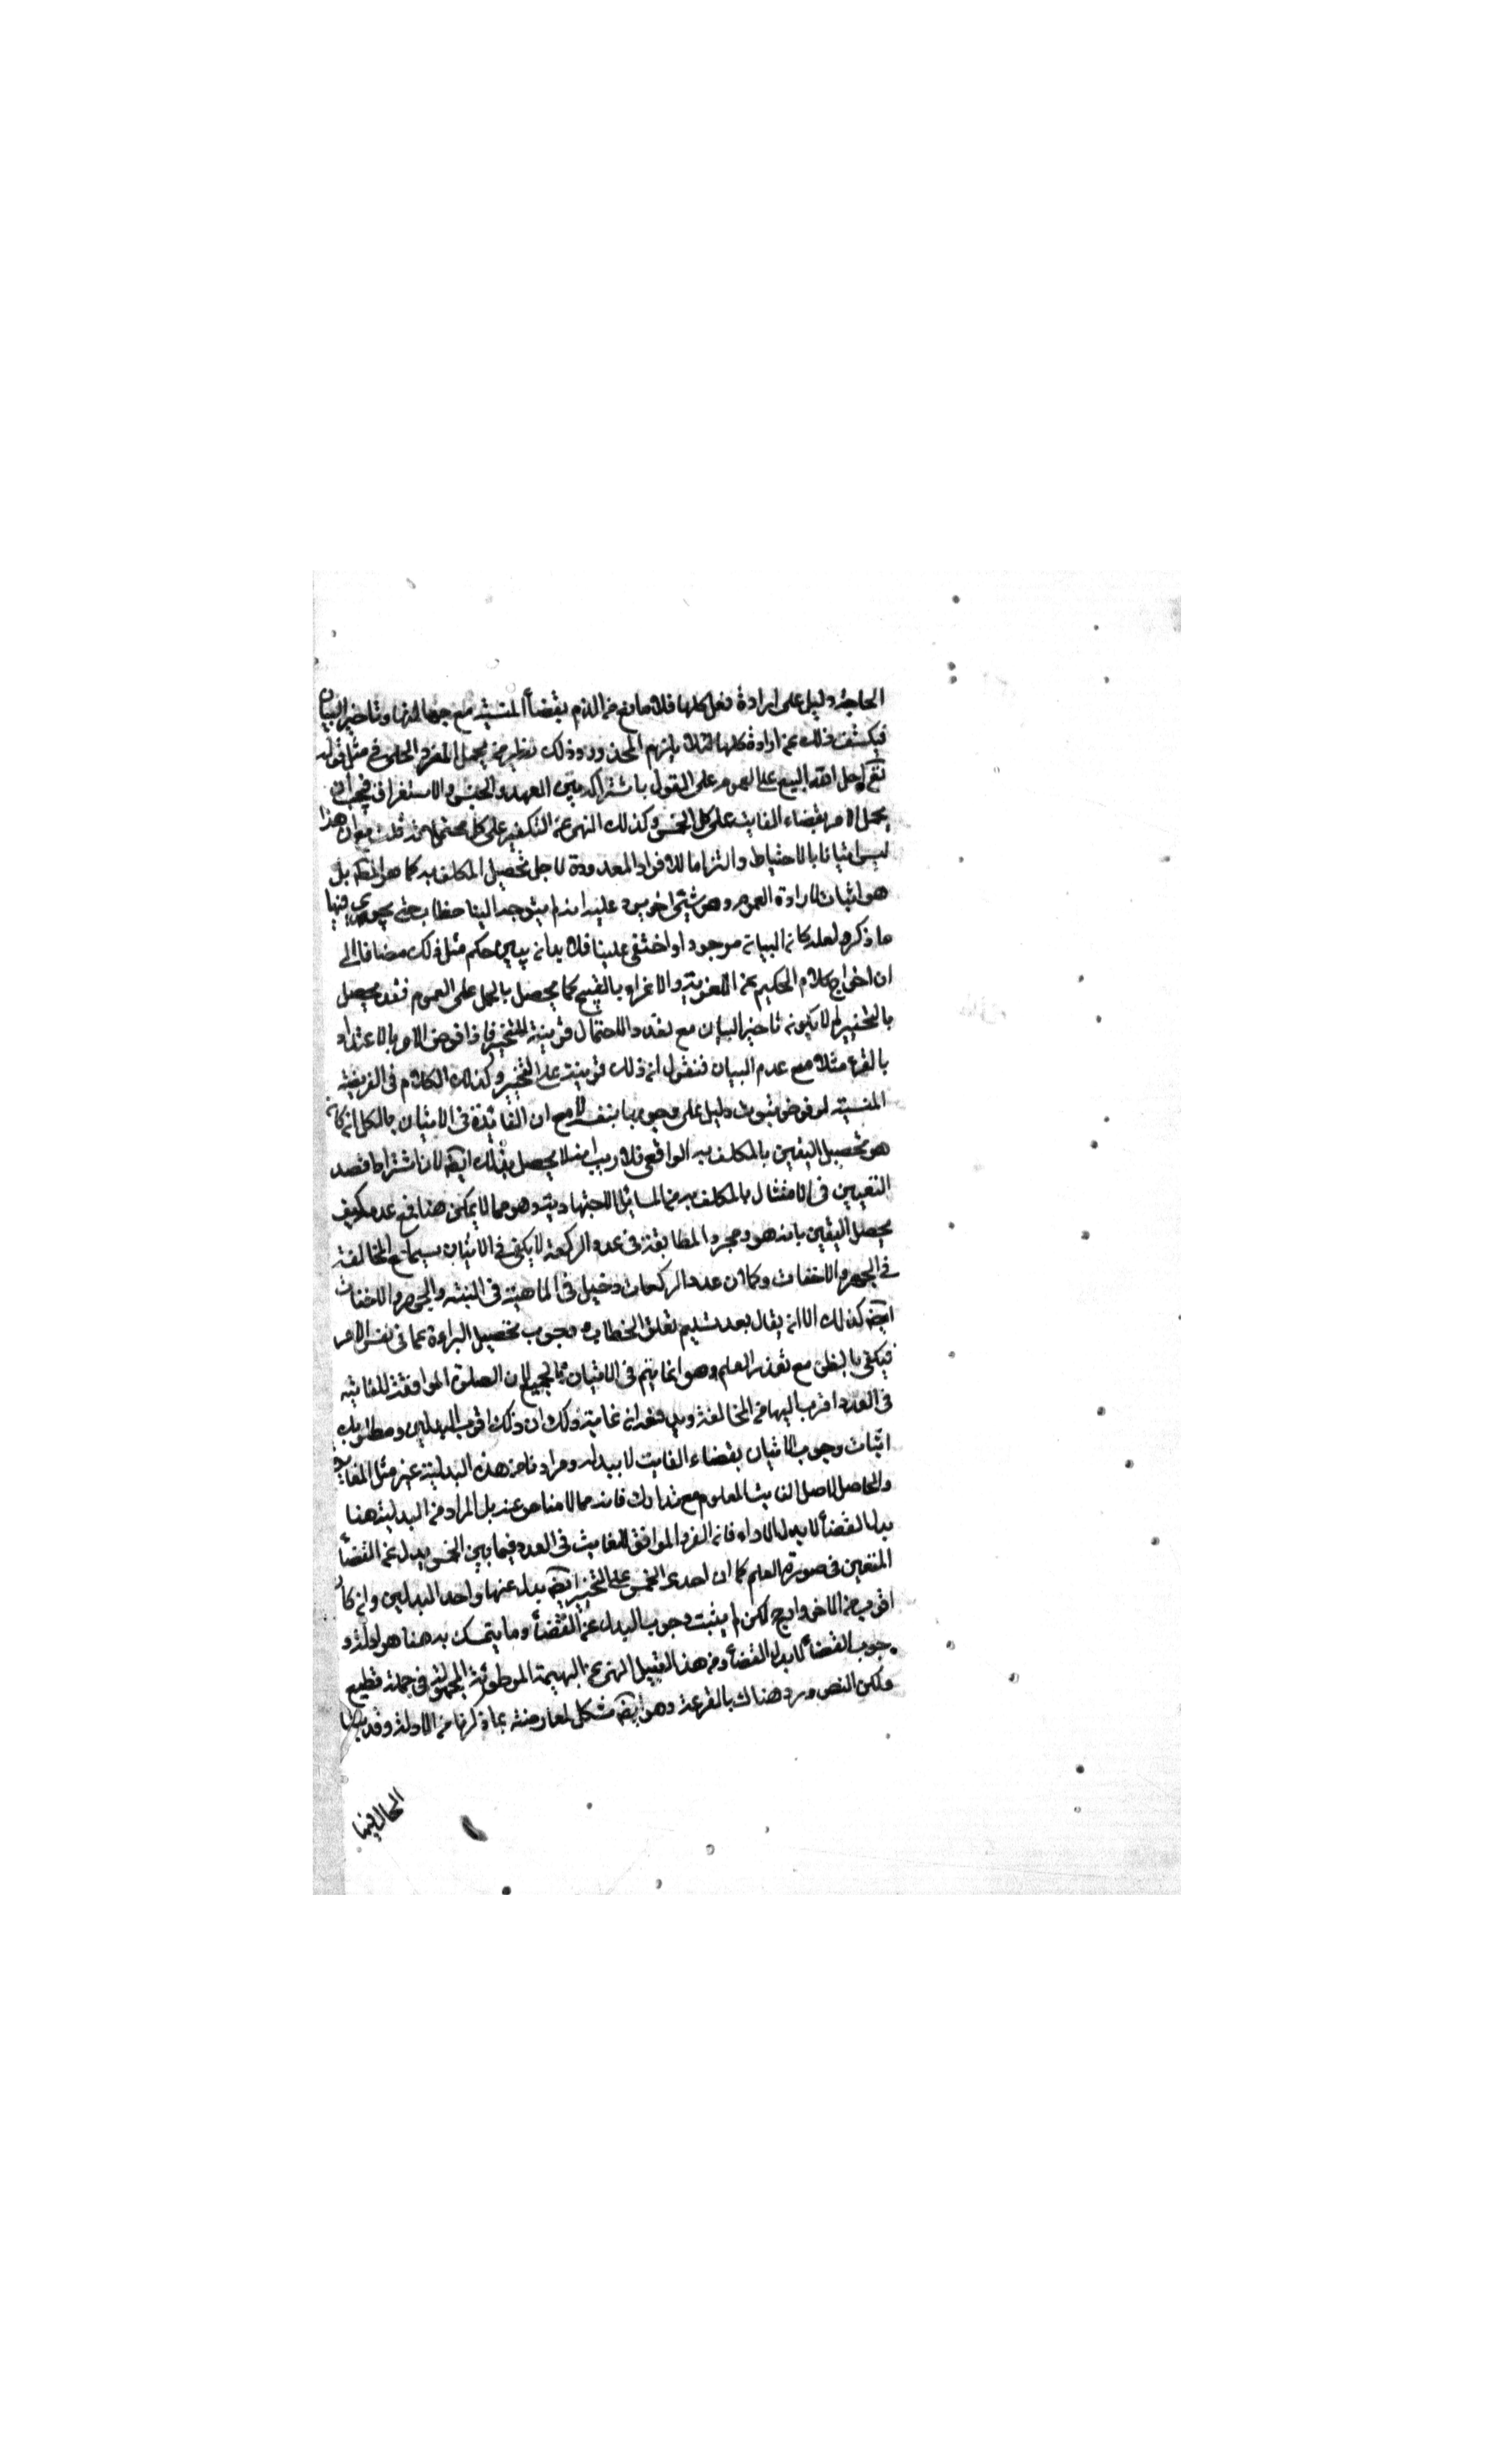 الحاجة دليل على ارادة فعل كلها فلا مانع من الزم بقضاء المنسية مع جهالتها وتاخير البيان
فيكشف ذلك عن ارادة كلها لئلا يلزم المحذور وذلك نظير من يحمل المفرد المحلى في مثل قوله
تعالى احل الله البيع على العموم على القول باشتراكه بين العهد والجنس والاستغراق فيجب ان
يحمل الامر بقضاء الفايت على كل الخمس وكذلك النهى عن التكفير على كل محتملاته قلت مع ان هذا
ليس اتيانا بالاحتياط والتزاما للافراد المعدودة لاجل تحصيل المكلف به كما هو المقصود بل
هو اثبات لارادة العموم وهو شيئ اخر يرد عليه انه لم يتوجه الينا خطاب حتى يجرى فيها
ما ذكره لعله كان البيان موجودا واختفى علينا فلا بد انه يبين حكم مثل ذلك مضافا الى
ان اخراج كلام الحكيم عن اللغوية والاغراء بالقبيح كما يحصل بالحمل على العموم فقد يحصل
بالتخيير لم لا يكون تاخير البيان مع تعدد الاحتمال قرينة التخيير فاذا فرض الامر بالاعتداد
بالقرء مثلا مع عدم البيان فنقول ان ذلك قرينة على التخيير وكذلك الكلام في الفريضة
المنسية لو فرض ثبوت دليل على وجوبها بنفسه مع ان الفائدة في الاتيان بالكل ان كان
هو تحصيل اليقين بالمكلف به الواقعى فلا ريب انه لا يحصل بذلك ايضا لان اشتراط قصد
التعيين في الامتثال بالمكلف به من المسائل الاجتهادية وهو مما لا يمكن هنا فمع عدمه كيف
يحصل اليقين بانه هو ومجرد المطابقة في عدد الركعة لا يكفى في الاتيان سيما مع المخالفة
في الجهر والاخفات وكما ان عدد الركعات دخيل في الماهية فى النية والجهر والاخفات
ايضا كذلك الا ان يقال بعد تسليم تعلق الخطاب وجوب تحصيل البراءة عما في نفس الامر
فيكفى بالظن مع تعذر العلم وهو انما يتم فى الاتيان بالجميع لان الصلوة الموافقة للفايتة
في العدد اقرب اليها من المخالفة ويدفعه ان غاية ذلك ان ذلك اقرب البدلين ومطلوبك
اثبات وجوب الاتيان بقضاء الفايت لا ببدله ومرادنا من هذه البدلية غير مثل الفايت
والحاصل لاصل الفايت المعلوم مع تدارك فانه مما لا مناص عنه بل المراد من البدلية هنا
بدل القضاء لا بدل الاداء فان الفرد الموافق للفايت فى العدد فيما بين الخمس بدل عن القضاء
المتعين في صورة العلم كما ان احدى الخمس على التخيير ايضا بدل عنها واحد البدلين وان كان
اقرب من الاخر وارجح لكن لم يثبت وجوب البدل عن القضاء وما يتمسك به هنا هو ادلة و
جوب القضاء لا بدل القضاء ومن هذا القبيل النهى عن البهيمة الموطوئة المجهولة في جملة قطيع
ولكن النص ورد هناك بالقرعة وهو ايضا مشكل لمعارضته بما ذكرنا من الادلة وقد بينا
الحال فيها